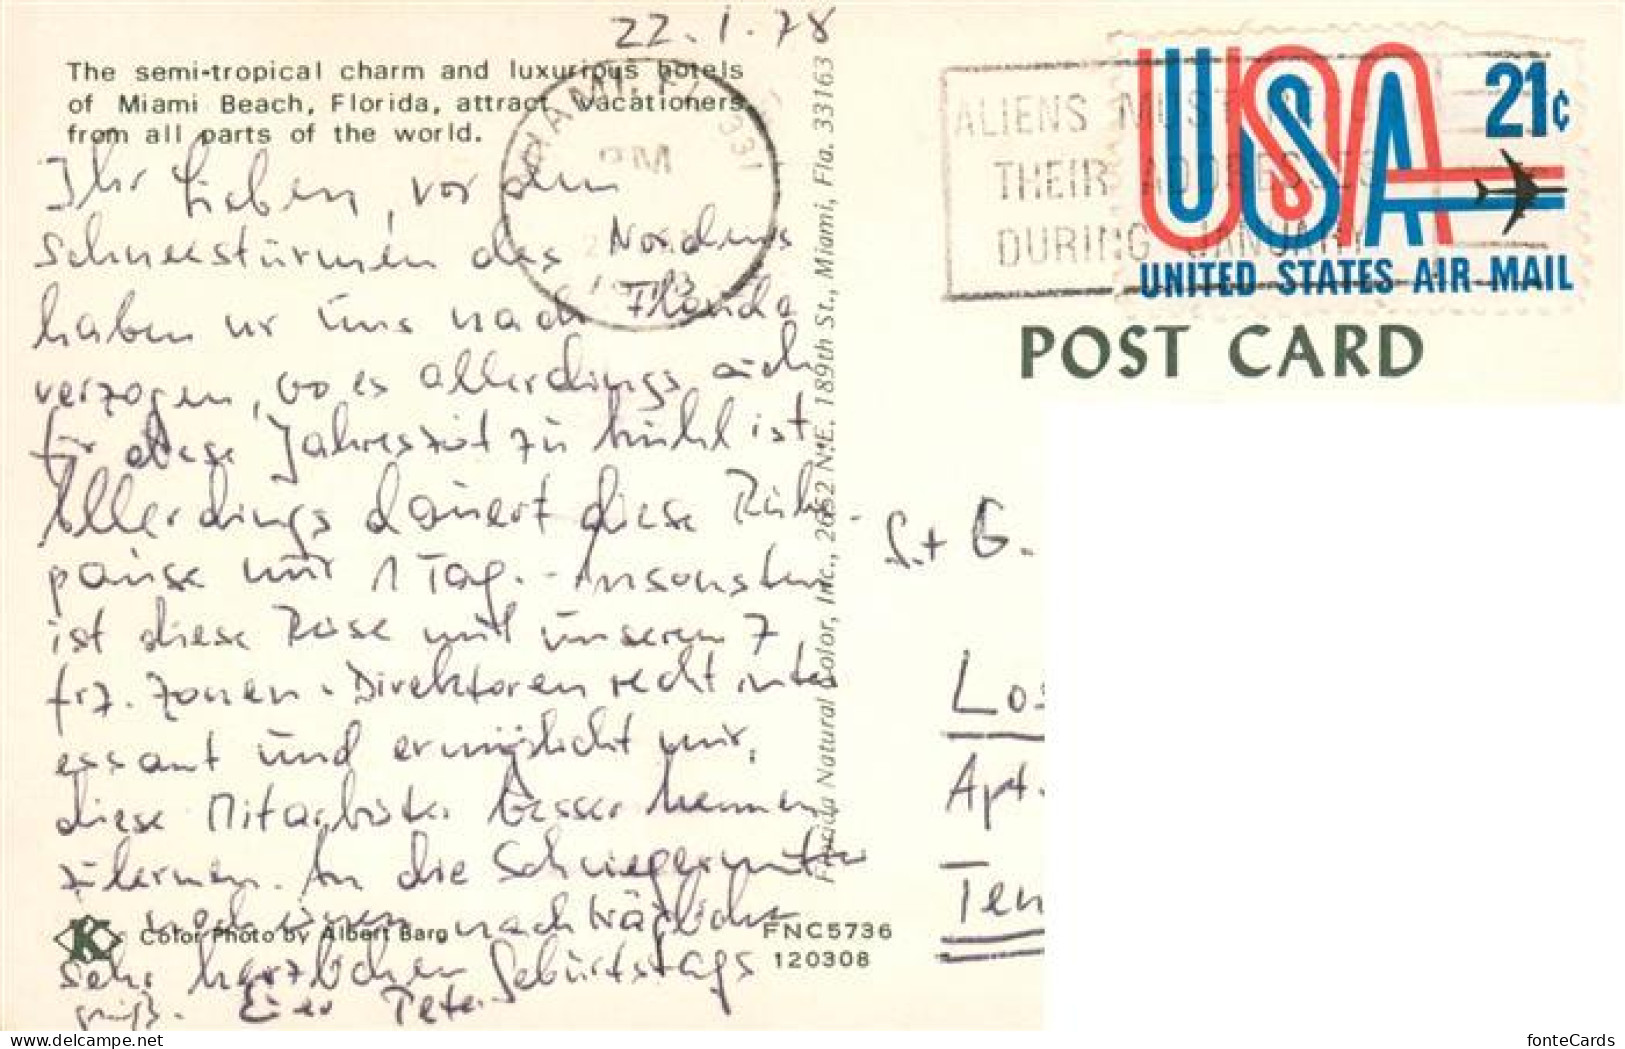 22.1.78
The semi-tropical charm and luxurious hotels
of Miami Beach, Florida, attract vacationers
from all parts of the world.
Ihr Lieben, vor den
Schneestürmen des Nordens
haben wir uns nach Florida
verzogen, wo es allerdings auch
für diese Jahreszeit zu kühl ist.
Allerdings dauert diese Ruhe-
pause nur 1 Tag. - Ansonsten
ist diese Reise mit unseren 7
frz. Zonen-Direktoren recht inter
essant und ermöglicht mir,
diese Mitarbeiter besser kennen
zulernen. An die Schwiegermutter
noch einen nachträglichen
sehr herzlichen Geburtstags
gruß. Euer Peter
K Color Photo by Albert Barg
FNC5736
120308
Florida Natural Color, Inc., 2652 N.E. 189th St., Miami, Fla. 33163
MIAMI, FL 331
PM
ALIENS MUST
THEIR ADDRESSES
DURING JANUARY
USA 21c
UNITED STATES AIR MAIL
POST CARD
S.+ G.
Los
Apt.
Ten
www.delcampe.net
fonteCards